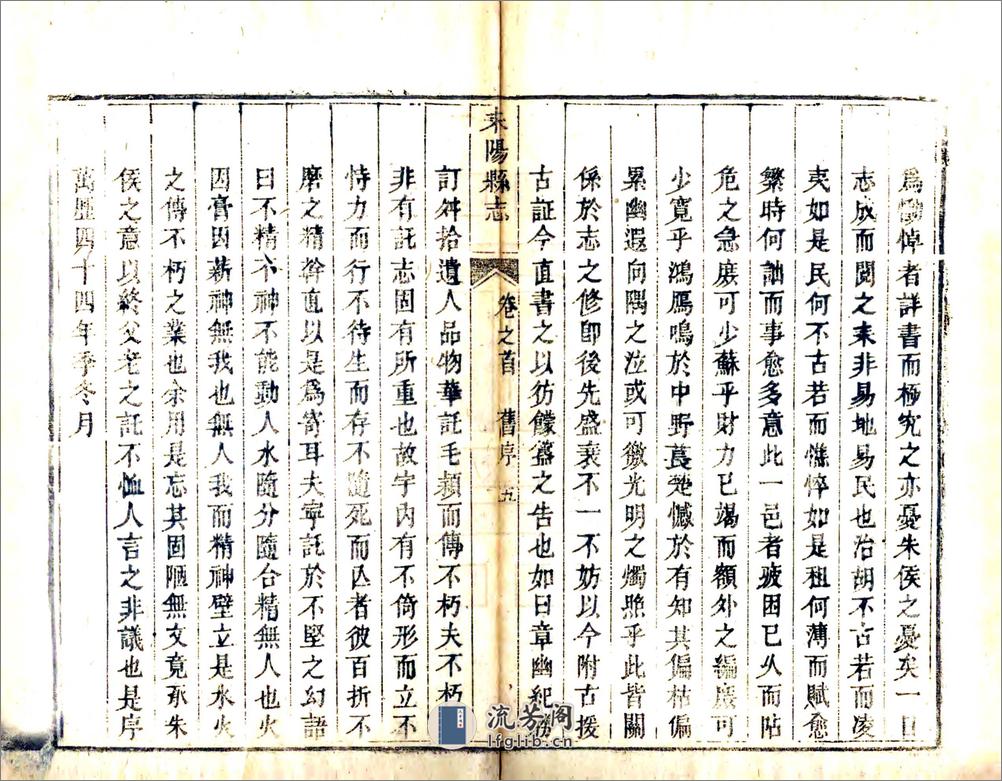 爲慟悼者詳書而極究之亦憂朱侯之憂矣一日
志成而閱之耒非易地易民也治胡不古若而凌
夷如是民何不古若而憔悴如是租何薄而賦愈
繁時何詘而事愈多意此一邑者疲困已久而阽
危之急庶可少蘇乎財力已竭而額外之編庶可
少寬乎鴻鴈鳴於中野萇楚憾於有知其偏枯偏
累幽遐向隅之泣或可徼光明之燭照乎此皆關
係於志之修卽後先盛衰不一不妨以今附古援
古証今直書之以彷饛簋之告也如曰章幽紀
耒陽縣志
卷之首 舊序 五
訂舛拾遺人品物華託毛穎而傳不朽夫不朽
非有託志固有所重也故宇內有不倚形而立不
恃力而行不待生而存不隨死而亾者彼百折不
磨之精幹直以是爲寄耳夫寧託於不堅之幻語
曰不精不神不能動人水隨分隨合精無人也火
因膏因薪神無我也無人我而精神壁立是水火
之傳不朽之業也余用是忘其固陋無文竟承朱
侯之意以終父老之託不恤人言之非議也是序
萬曆四十四年季冬月
流芳閣
lfglib.cn